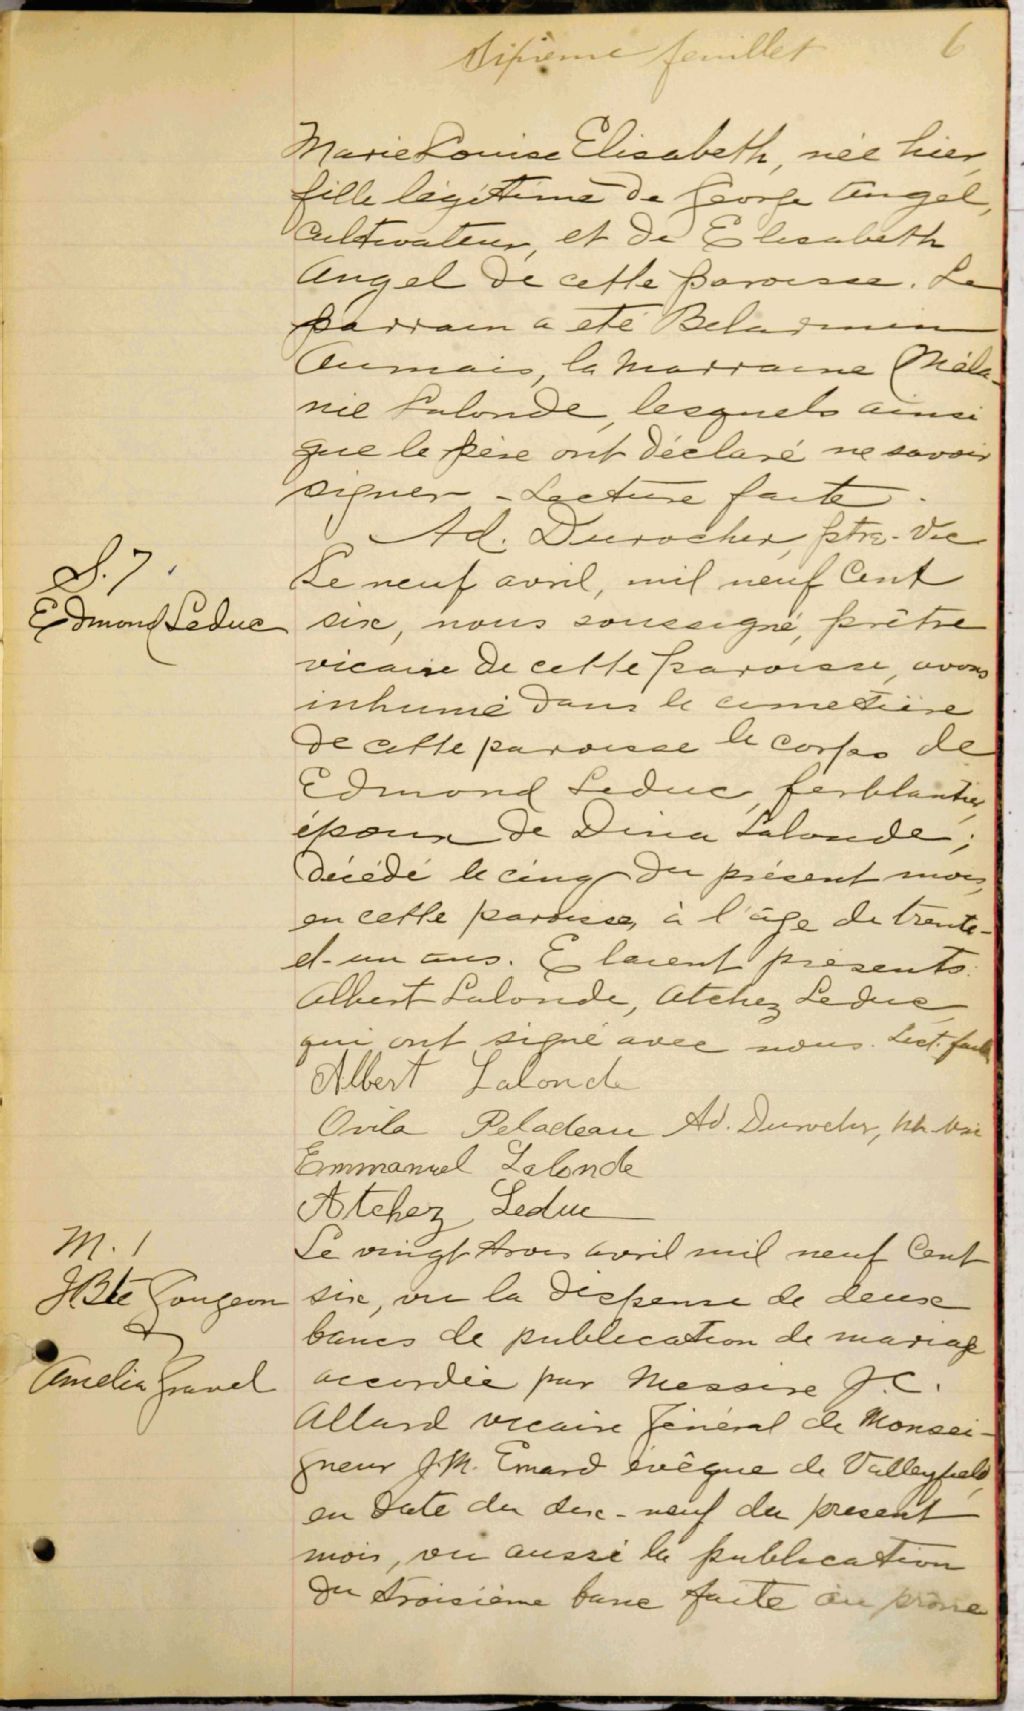 Sixième feuillet 6
Marie Louise Elisabeth, née hier,
fille légitime de George Angel,
cultivateur, et de Elisabeth
Angel de cette paroisse. Le
parrain a été Belarmin
Aumais, la marraine Méla-
nie Lalonde, lesquels ainsi
que le père ont déclaré ne savoir
signer - Lecture faite.
Ad. Durocher, ptre. Vic
S. 7
Edmond Leduc
Le neuf avril, mil neuf Cent
six, nous soussigné, prêtre
vicaire de cette paroisse, avons
inhumé dans le cimetière
de cette paroisse le corps de
Edmond Leduc, ferblantier,
époux de Dina Lalonde;
décédé le cinq du présent mois,
en cette paroisse, à l'âge de trente-
et-un ans. Etaient présents:
Albert Lalonde, Atchez Leduc,
qui ont signé avec nous. Lect. faite
Albert Lalonde
Ovila Peladeau Ad. Durocher, ptr. Vic
Emmanuel Lalonde
Atchez Leduc
M. 1
J Bte Gougeon
&
Amelia Gravel
Le vingt trois avril mil neuf Cent
six, vu la dispense de deux
bancs de publication de mariage
accordée par Messire J. C.
Allard vicaire général de Monsei-
gneur J. M. Emard évêque de Valleyfield,
en date du dix-neuf du present
mois, vu aussi la publication
du troisième banc faite au prône